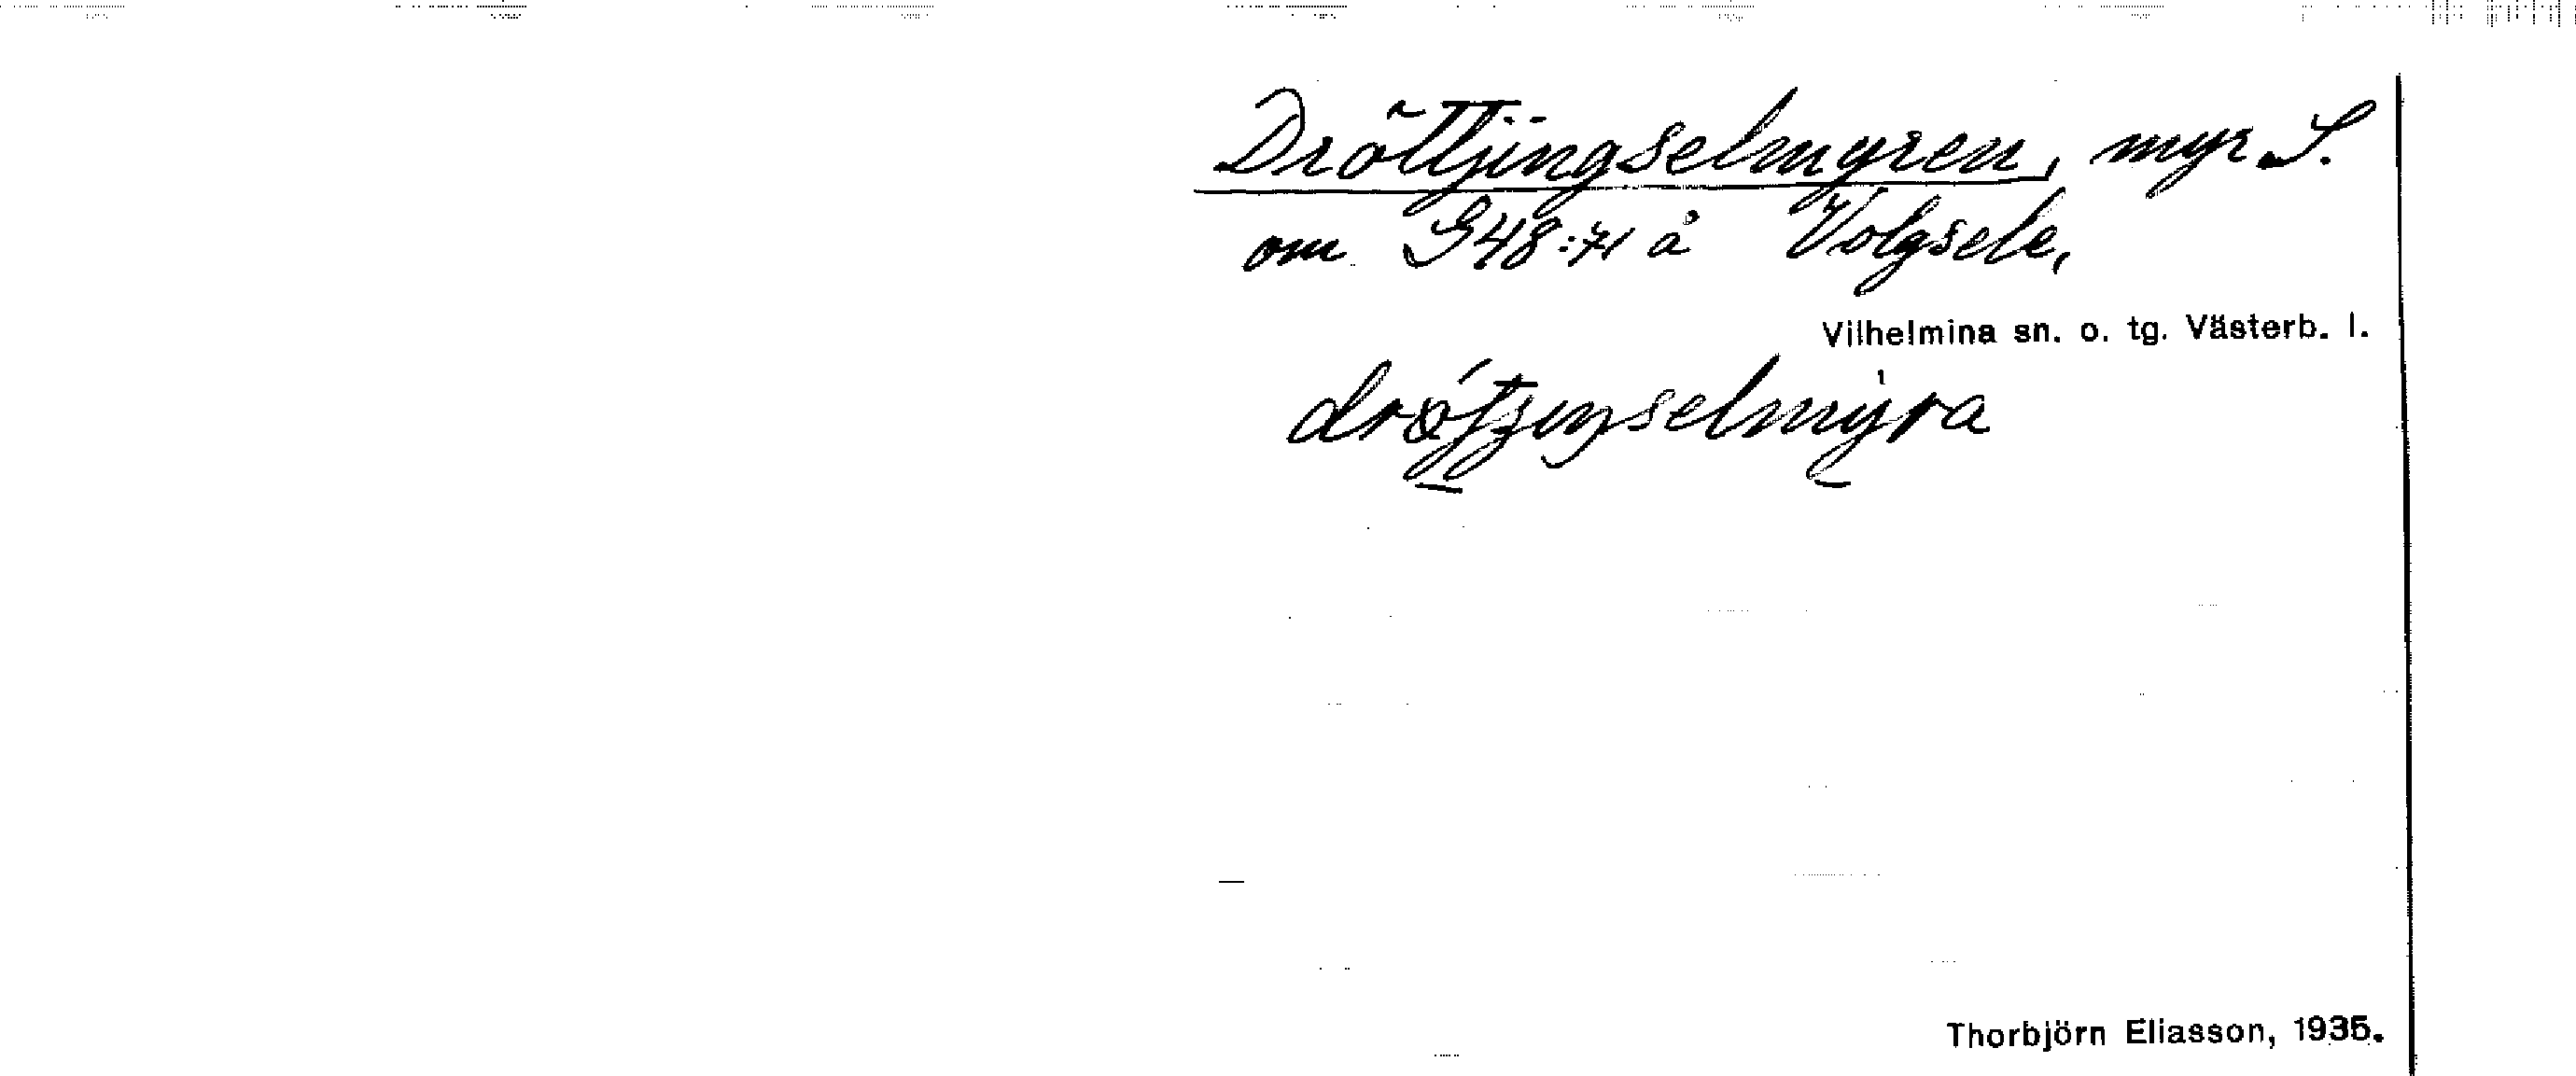 Dröttjingselmyren, myr S.
om G48:71 å Volgsele,
Vilhelmina sn. o. tg. Västerb. l.
Thorbjörn Eliasson, 1935.